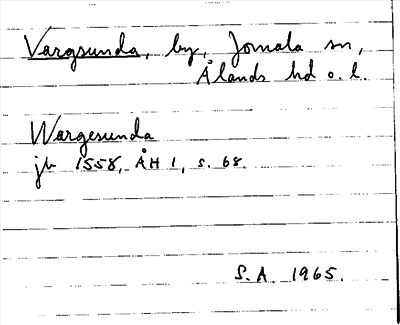 Vargsunda, by, Jomala sn,
Ålands hd o. l.
Wargesunda
jb 1558, ÅH 1, s. 68.
S.A. 1965.